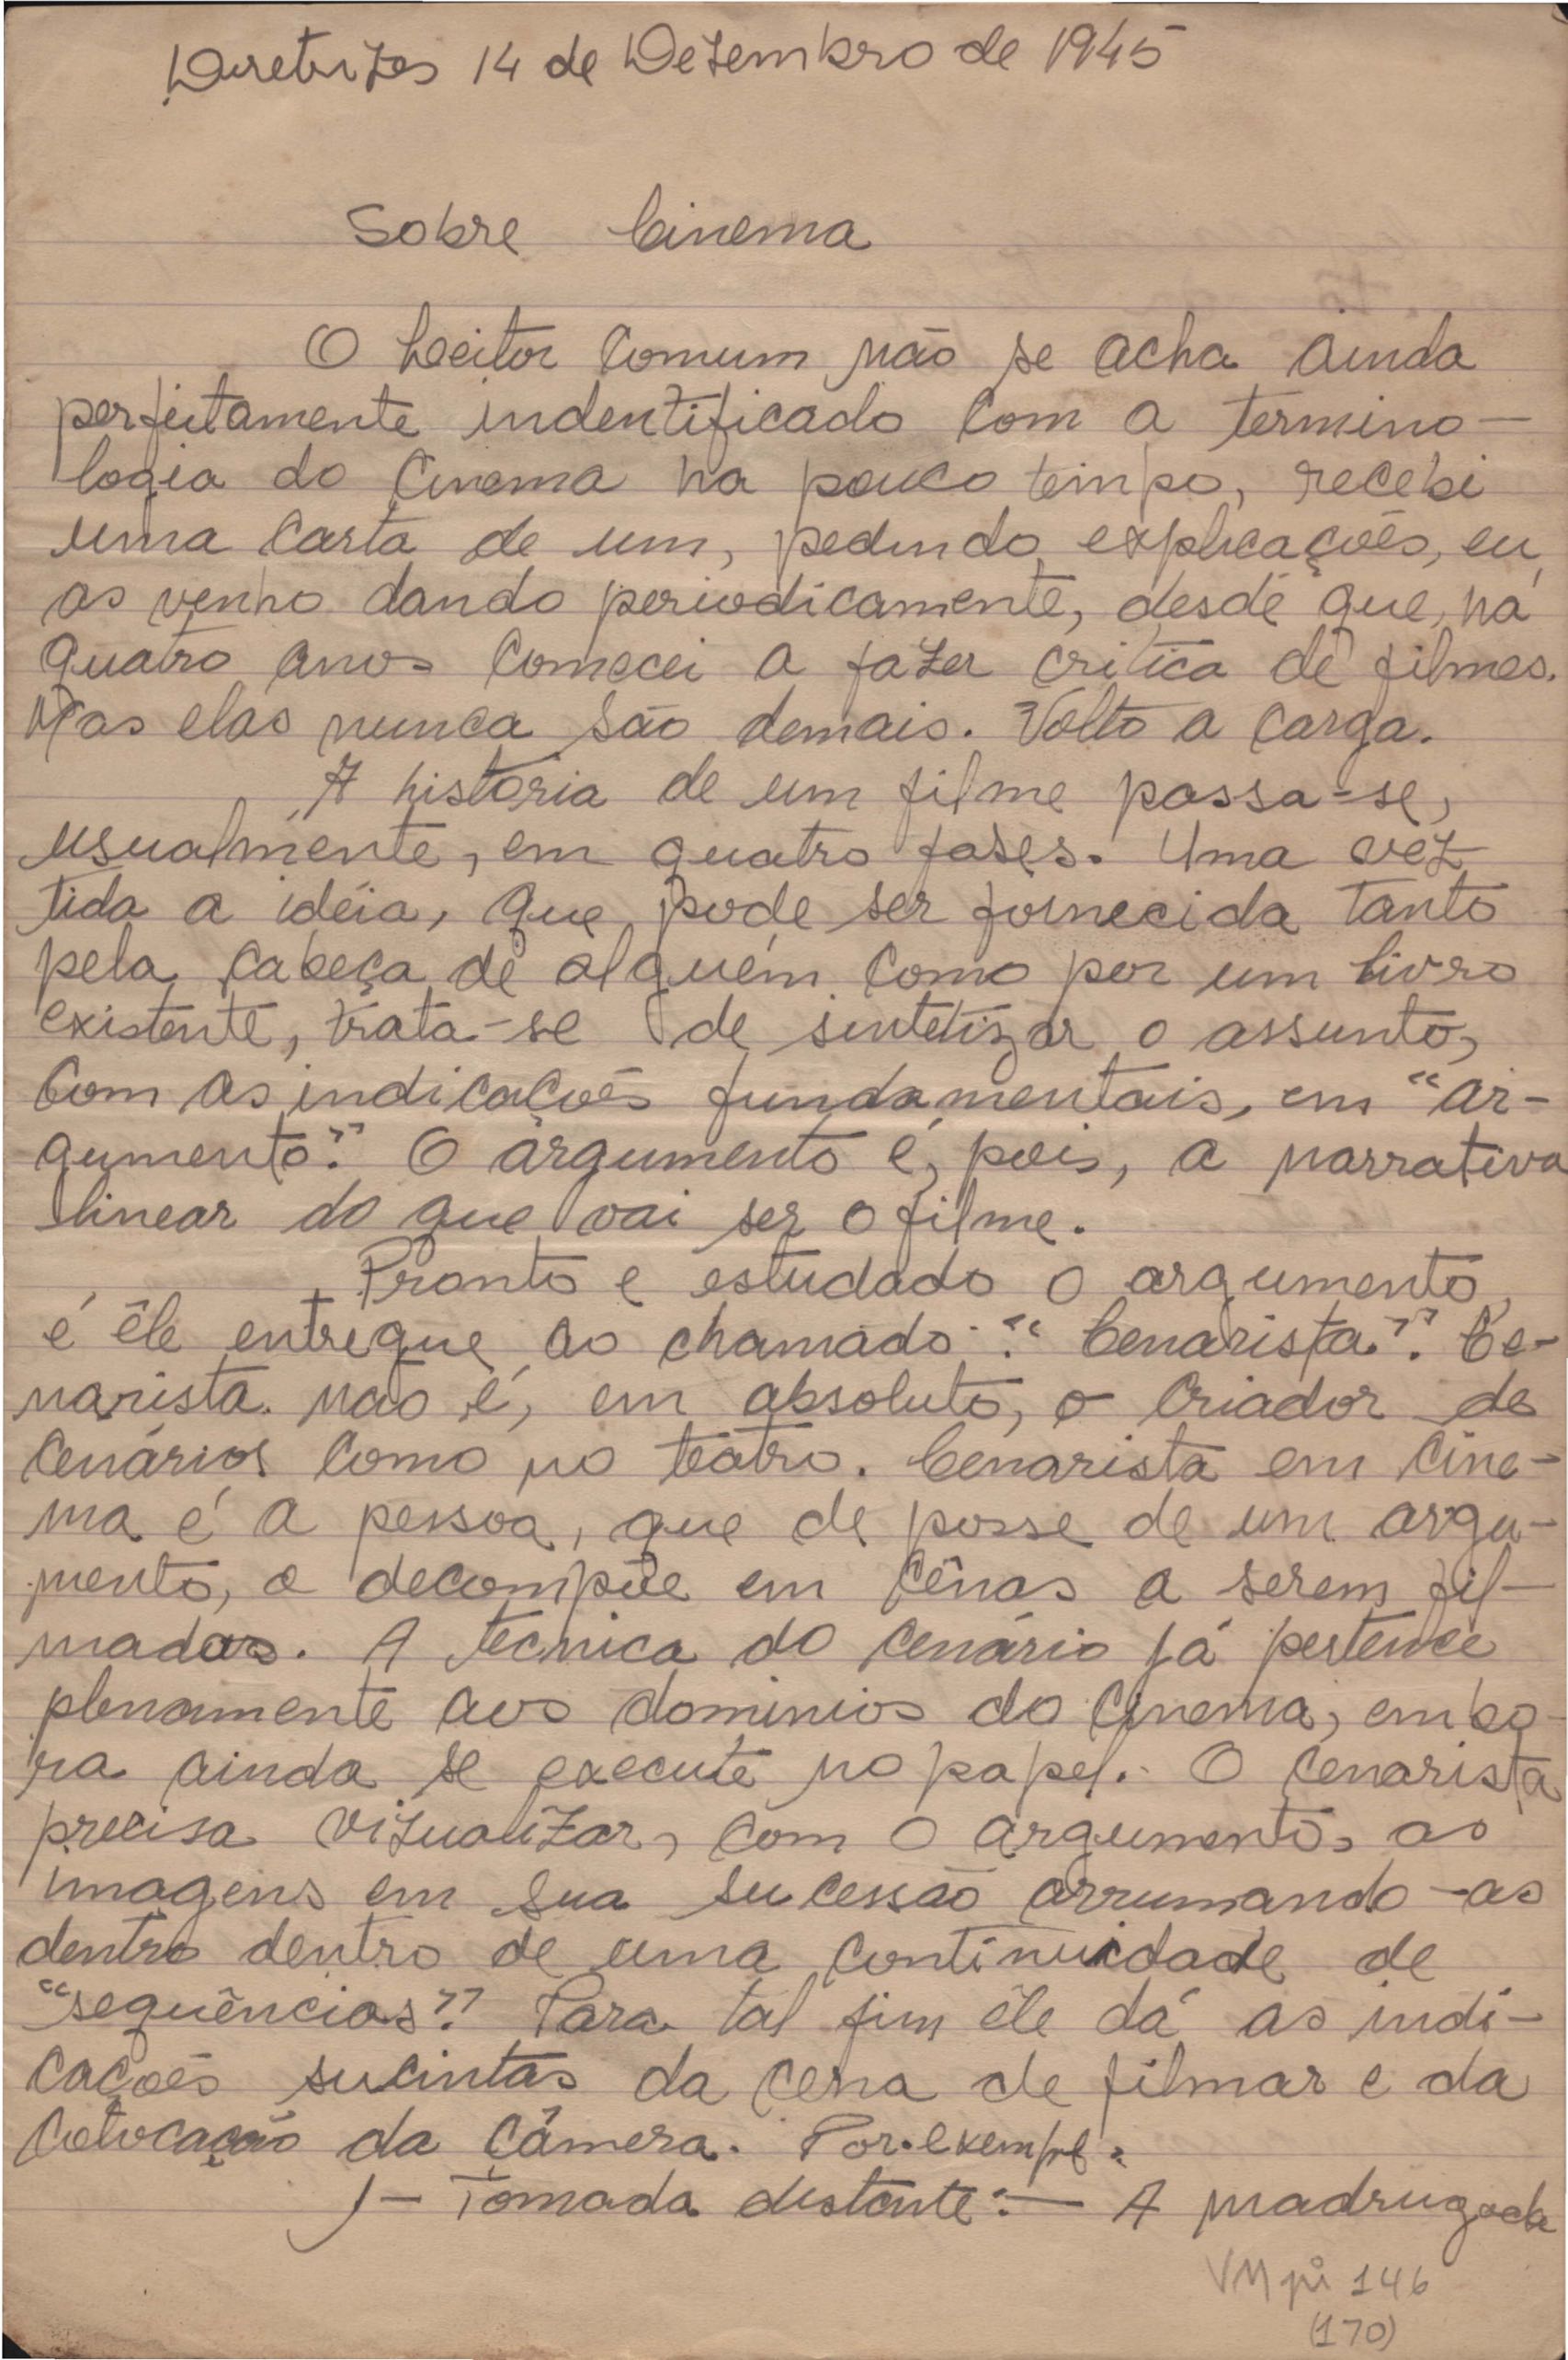 Diretrizes 14 de Dezembro de 1945
Sobre Cinema
O Leitor Comum não se acha ainda
perfeitamente indentificado com a termino-
logia do Cinema ha pouco tempo, recebi
uma carta de um, pedindo explicações, eu
as venho dando periodicamente, desde que, há
quatro anos comecei a fazer critica de filmes.
Mas elas nunca são demais. Volto a carga.
A história de um filme passa-se,
usualmente, em quatro fases. Uma vez
tida a idéia, que pode ser fornecida tanto
pela cabeça de alguém como por um livro
existente, trata-se de sintetizar o assunto,
com as indicações fundamentais, em "ar-
gumento". O argumento é, pois, a narrativa
linear do que vai ser o filme.
Pronto e estudado o argumento,
é êle entregue ao chamado: "Cenarista". Ce-
narista não é, em absoluto, o criador de
cenários como no teatro. Cenarista em cine-
ma é a pessoa, que de posse de um argu-
mento, o decompõe em cênas a serem fil-
madas. A técnica do cenário já pertence
plenamente aos dominios do Cinema, embo-
ra ainda se execute no papel. O cenarista
precisa vizualizar, com o argumento, as
imagens em sua sucessão arrumando-as
dentro dentro de uma continuidade de
"sequências". Para tal fim êle dá as indi-
cações sucintas da cena de filmar e da
colocação da câmera. Por exemplo.
1- Tomada distante: - A madrugada
VM pi 146
(170)